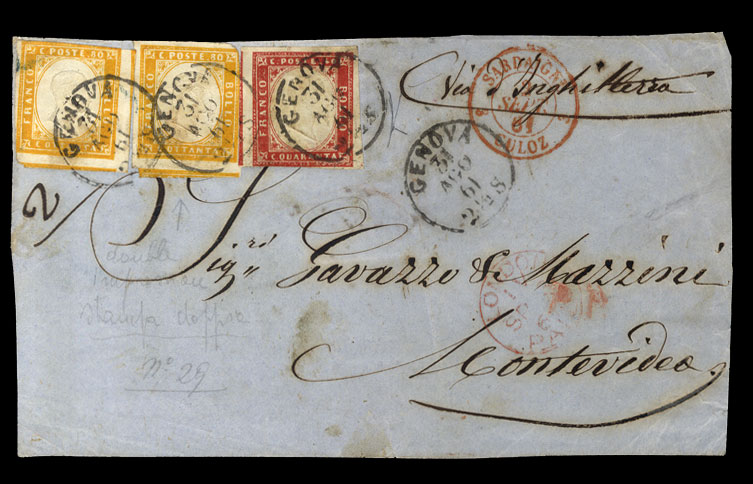 C. POSTE 80
FRANCO
BOLLO
C. POSTE 80
FRANCO
BOLLO
C. OTTANTA
C. POSTE 40
FRANCO
BOLLO
C. QUARANTA
GENOVA
31
AGO
61
GENOVA
31
AGO
61
GENOVA
31
AGO
61
2½S
GENOVA
31
AGO
61
2½S
SARDAIGNE
SEPT
61
CULOZ
Via d'Inghilterra
2/
Sigri Gavazzo & Mazzini
Montevideo
PAID
double
impression
stampa doppia
no 29